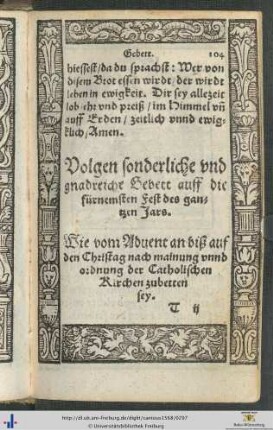 Gebett. 104
hiessest/da du sprachst: Wer von
disem Brot essen wirdt/der wirdt
leben in ewigkeit. Dir sey allezeit
lob/ehr vnd preiß/im Himmel vñ
auff Erden/zeitlich vnnd ewig-
klich/Amen.
Volgen sonderliche vnd
gnadreiche Gebett auff die
fürnemsten Fest des gan-
tzen Jars.
Wie vom Aduent an biß auf
den Christag nach mainung vnnd
ordnung der Catholischen
Kirchen zubetten
sey.
T ij
http://dl.ub.uni-freiburg.de/diglit/canisius1568/0207
© Universitätsbibliothek Freiburg
Baden-Württemberg